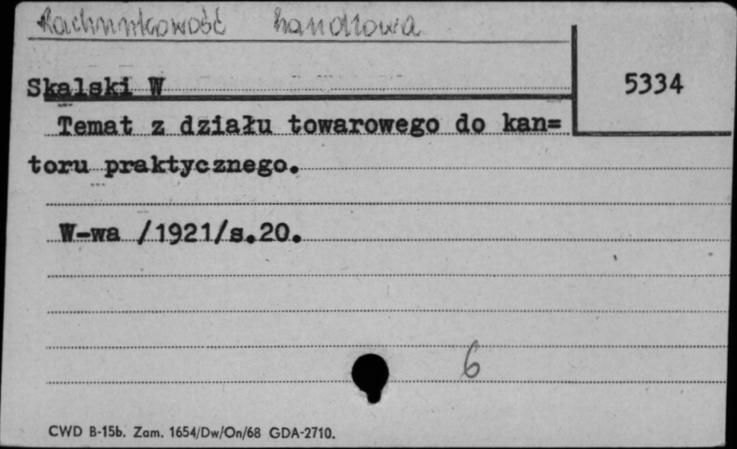 Rachunkowość handlowa
5334
Skalski W
Temat z działu towarowego do kan=
toru praktycznego.
W-wa /1921/s.20.
6
CWD B-15b. Zam. 1654/Dw/On/68 GDA-2710.